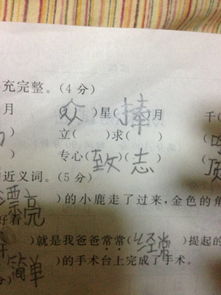 充完整。(4分)
月 (众)星(捧)月 千(
立( )求( )
专心(致)(志)
近义词。(5分)
漂亮
)的小鹿走了过来,金色的角
)就是我爸爸常常(经常)提起的
简单)的手术台上完成了手术。